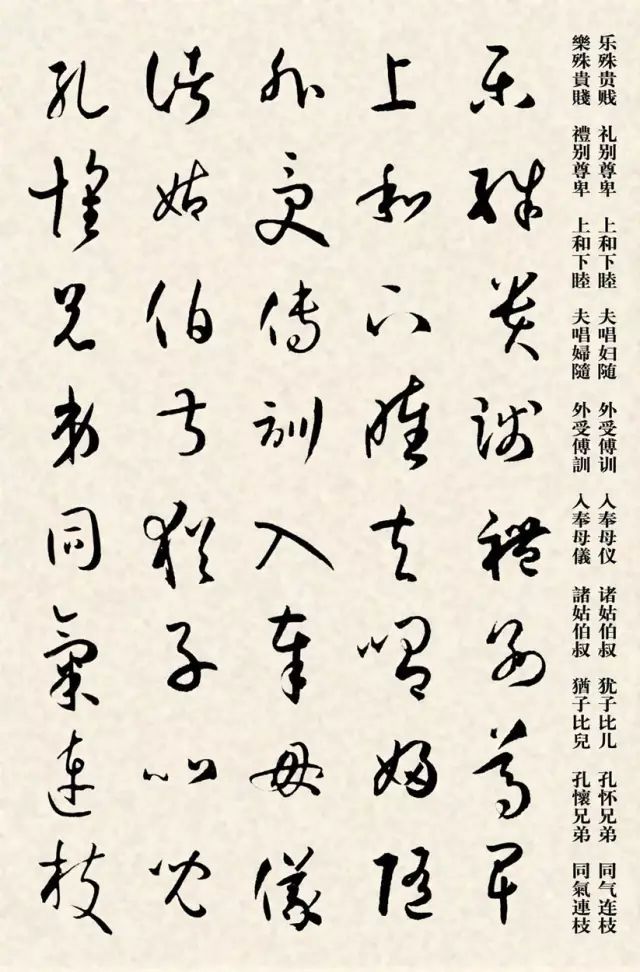 乐殊贵贱 礼别尊卑 上和下睦 夫唱妇随 外受傅训 入奉母仪 诸姑伯叔 犹子比儿 孔怀兄弟 同气连枝
樂殊貴賤 禮别尊卑 上和下睦 夫唱婦隨 外受傅訓 入奉母儀 諸姑伯叔 猶子比兒 孔懷兄弟 同氣連枝
樂殊貴賤禮别尊卑
上和下睦夫唱婦隨
外受傅訓入奉母儀
諸姑伯叔猶子比兒
孔懷兄弟同氣連枝